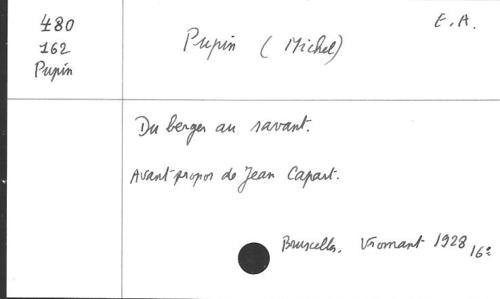 480
162
Pupin
Pupin (Michel)
E.A.
Du berger au savant.
Avant-propos de Jean Capart.
Bruxelles, Vromant 1928
16º